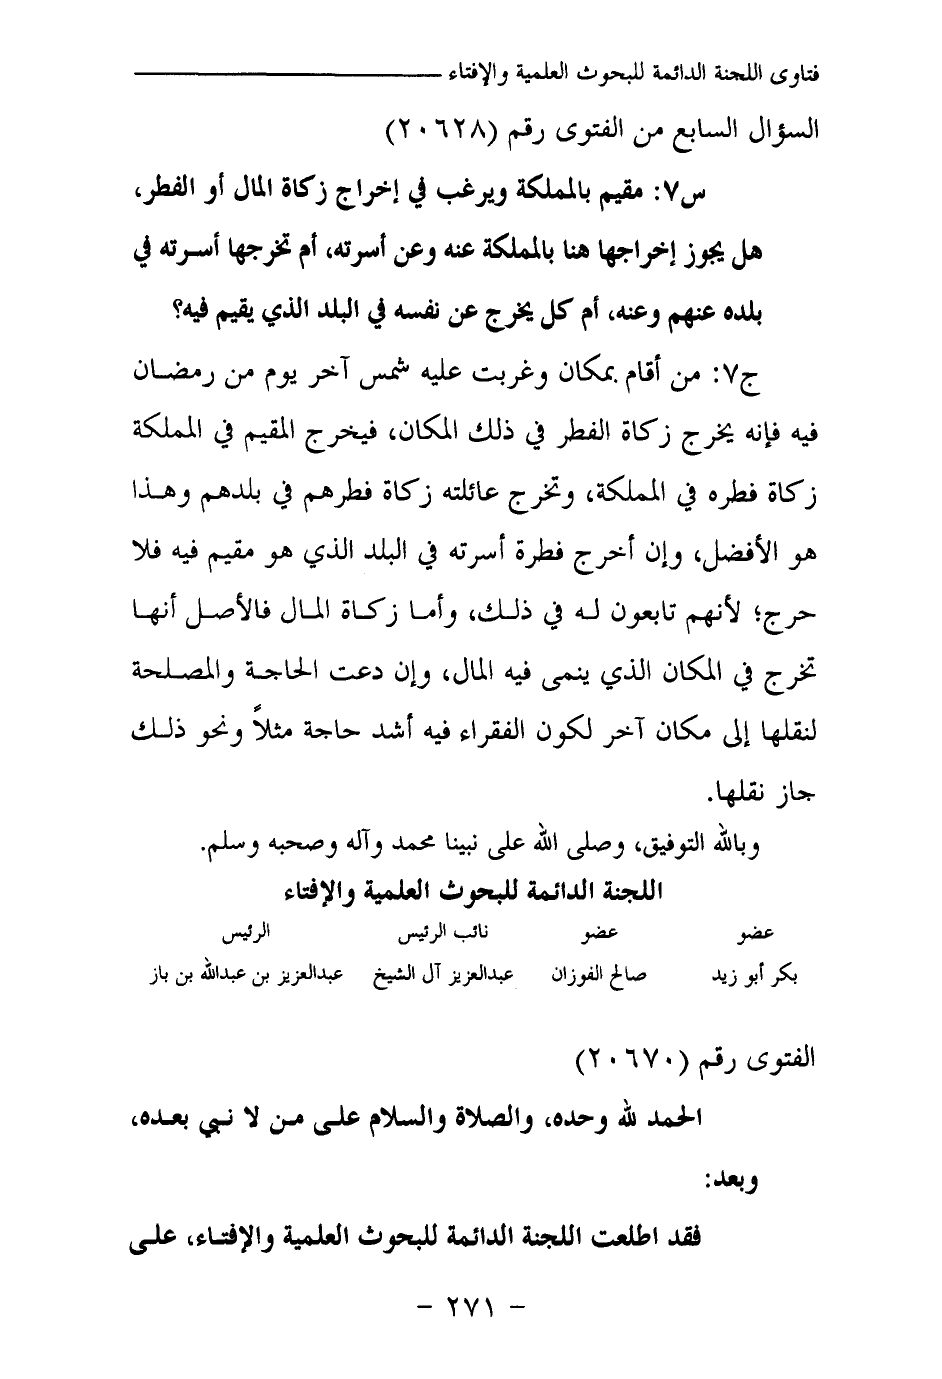 فتاوى اللجنة الدائمة للبحوث العلمية والإفتاء
السؤال السابع من الفتوى رقم (٢٠٦٢٨)
س٧: مقيم بالمملكة ويرغب في إخراج زكاة المال أو الفطر،
هل يجوز إخراجها هنا بالمملكة عنه وعن أسرته، أم تخرجها أسرته في
بلده عنهم وعنه، أم كل يخرج عن نفسه في البلد الذي يقيم فيه؟
ج٧: من أقام بمكان وغربت عليه شمس آخر يوم من رمضان
فيه فإنه يخرج زكاة الفطر في ذلك المكان، فيخرج المقيم في المملكة
زكاة فطره في المملكة، وتخرج عائلته زكاة فطرهم في بلدهم وهذا
هو الأفضل، وإن أخرج فطرة أسرته في البلد الذي هو مقيم فيه فلا
حرج؛ لأنهم تابعون له في ذلك، وأما زكاة المال فالأصل أنها
تخرج في المكان الذي ينمى فيه المال، وإن دعت الحاجة والمصلحة
لنقلها إلى مكان آخر لكون الفقراء فيه أشد حاجة مثلاً ونحو ذلك
جاز نقلها.
وبالله التوفيق، وصلى الله على نبينا محمد وآله وصحبه وسلم.
اللجنة الدائمة للبحوث العلمية والإفتاء
عضو عضو نائب الرئيس الرئيس
بكر أبو زيد صالح الفوزان عبدالعزيز آل الشيخ عبدالعزيز بن عبدالله بن باز
الفتوى رقم (٢٠٦٧٠)
الحمد لله وحده، والصلاة والسلام على من لا نبي بعده،
وبعد:
فقد اطلعت اللجنة الدائمة للبحوث العلمية والإفتاء، على
- ٢٧١ -